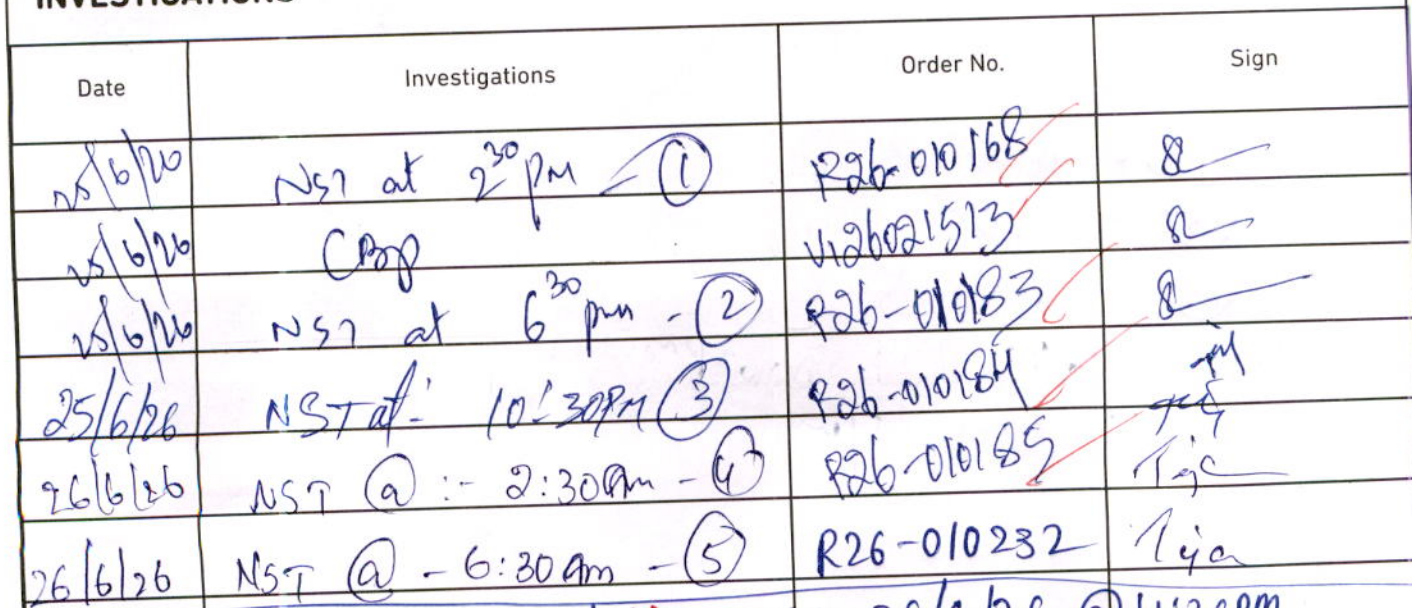 INVESTIGATIONS
Date Investigations Order No. Sign
25/6/26 NST at 2 30 pm - 1 R26-010168
25/6/26 CBP VI26021513
25/6/26 NST at 6 30 pm - 2 R26-010183
25/6/26 NST at:- 10:30PM 3 R26-010184
26/6/26 NST @ :- 2:30am - 4 R26-010185 Teja
26/6/26 NST @ - 6:30am - 5 R26-010232 Teja
@ 4:30pm